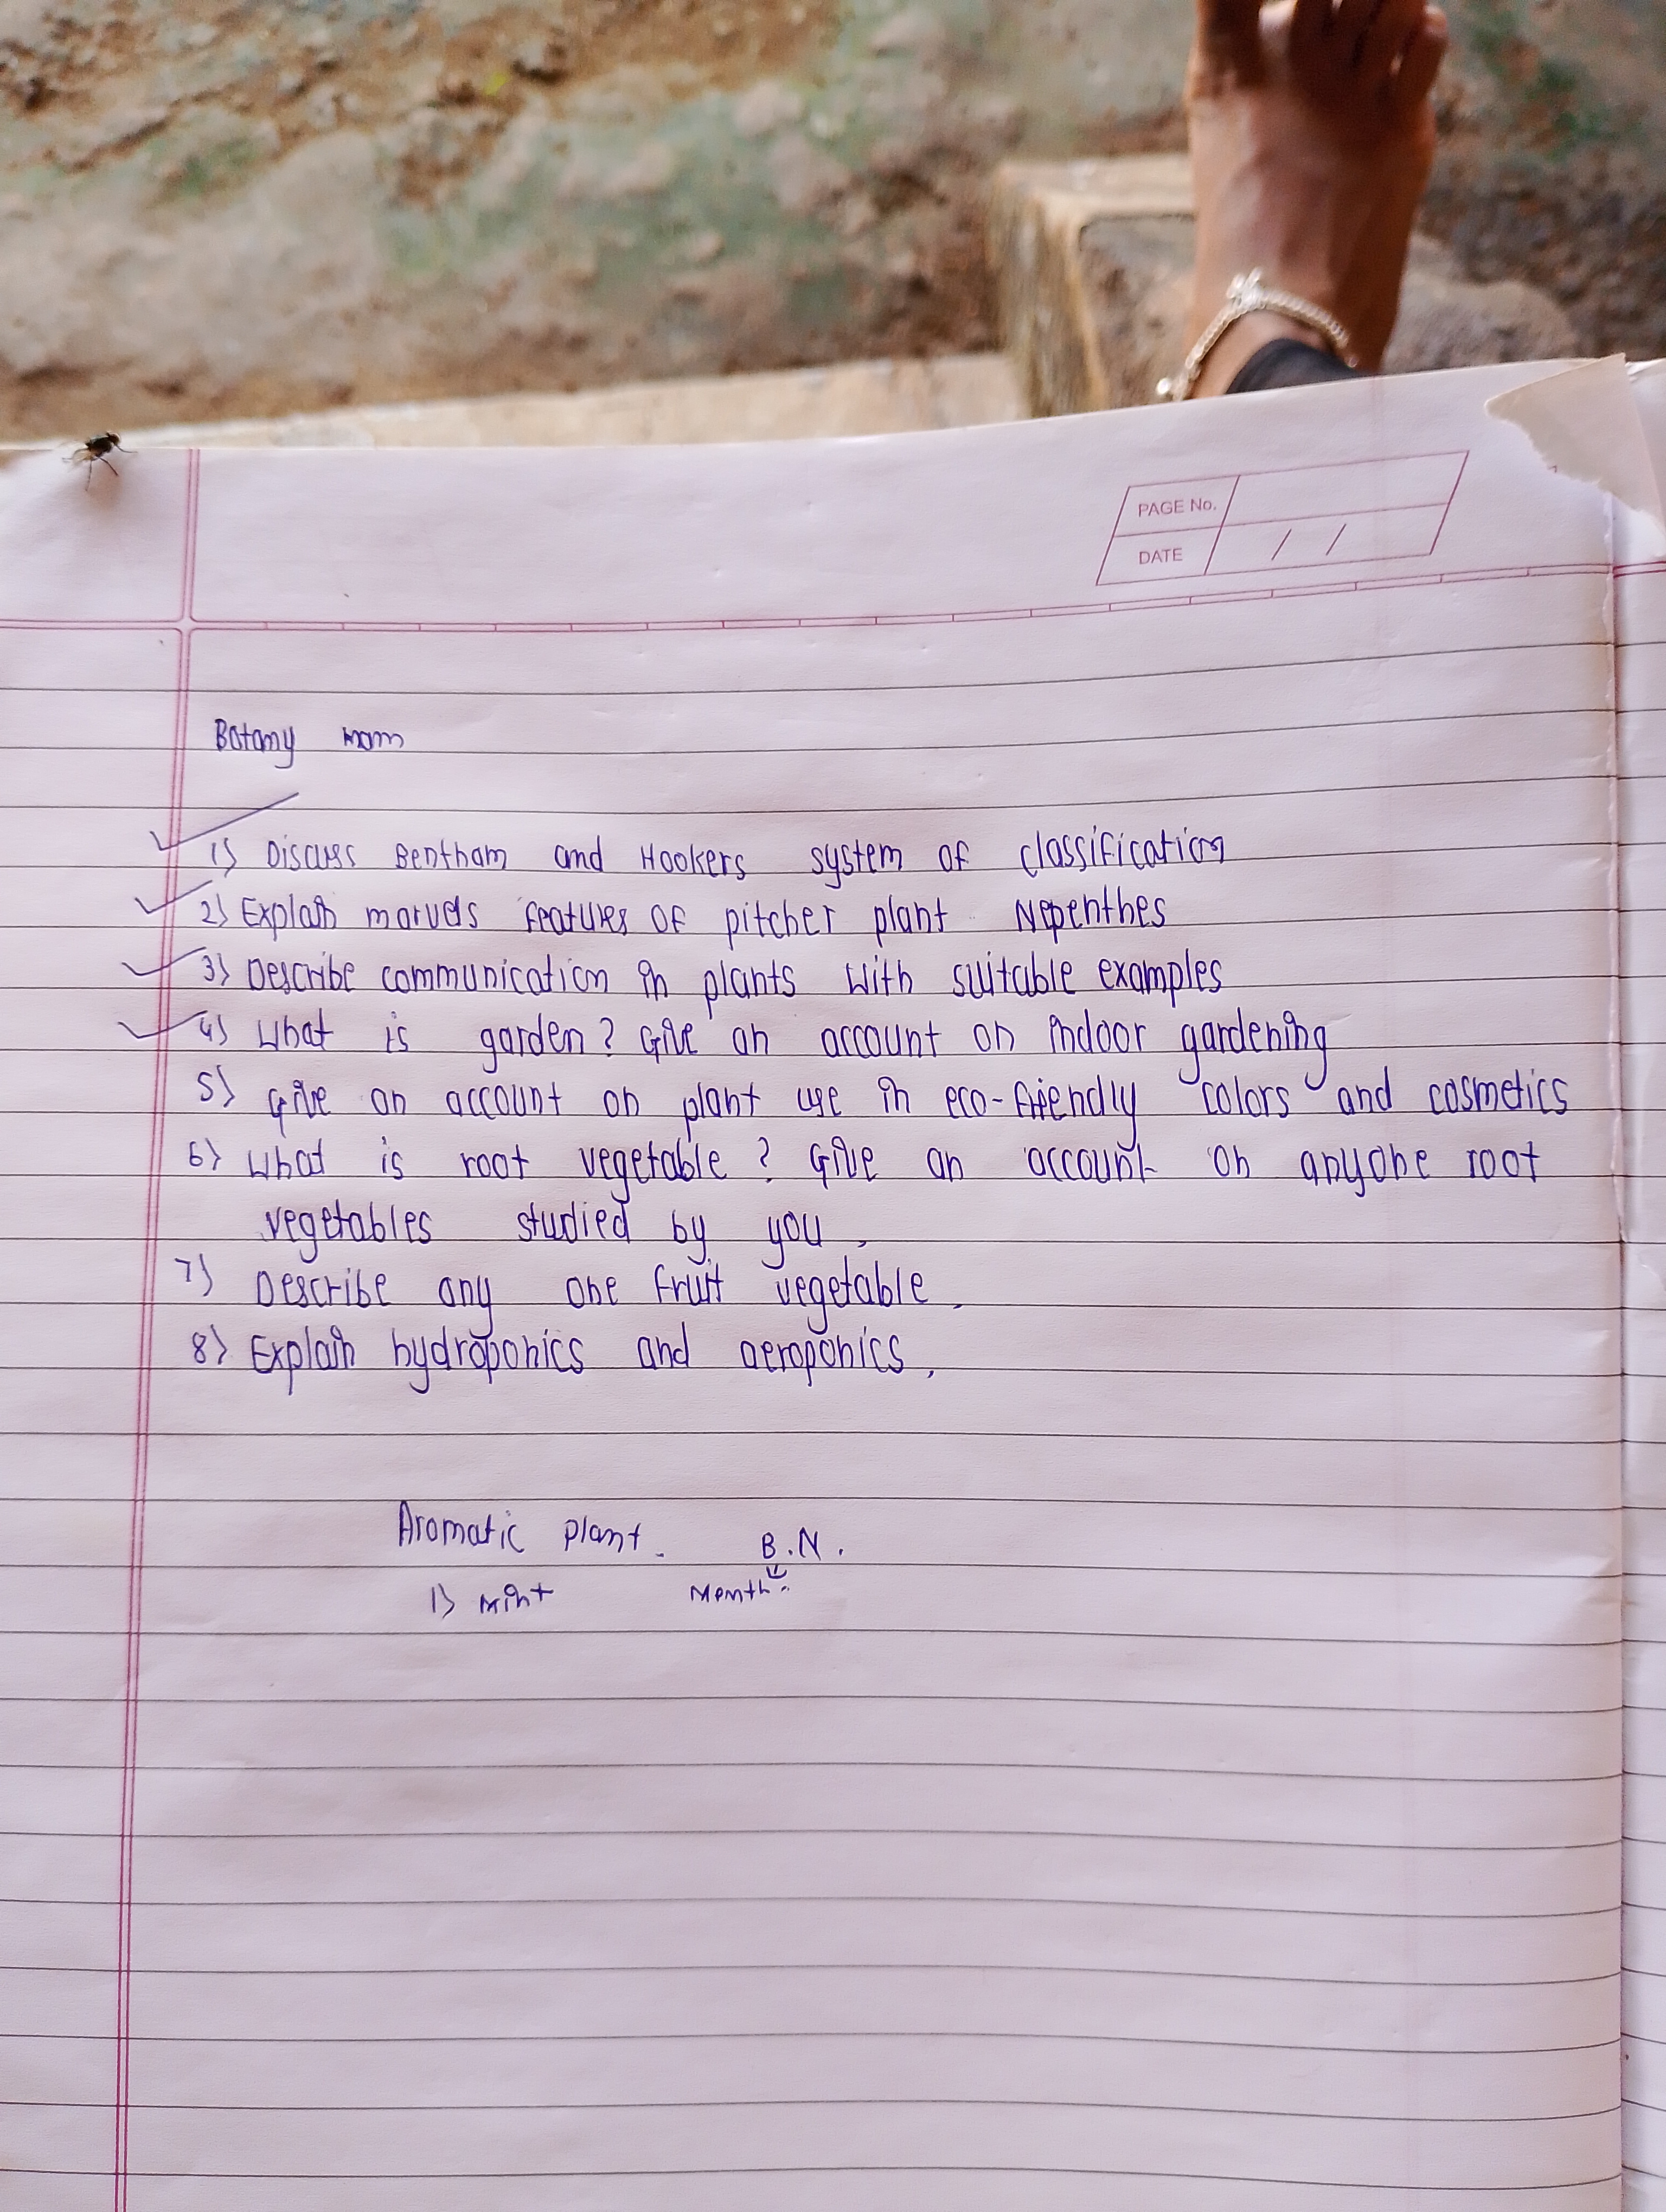 PAGE No.
DATE / /
Botany mam
1) Discuss Bentham and Hookers system of classification
2) Explain marvels features of pitcher plant Nepenthes
3) Describe communication in plants with suitable examples
4) What is garden? Give an account on indoor gardening
5) Give an account on plant use in eco-friendly colors and cosmetics
6) What is root vegetable? Give an account on anyone root
vegetables studied by you.
7) Describe any one fruit vegetable.
8) Explain hydroponics and aeroponics.
Aromatic plant. B.N.
1) mint Menth